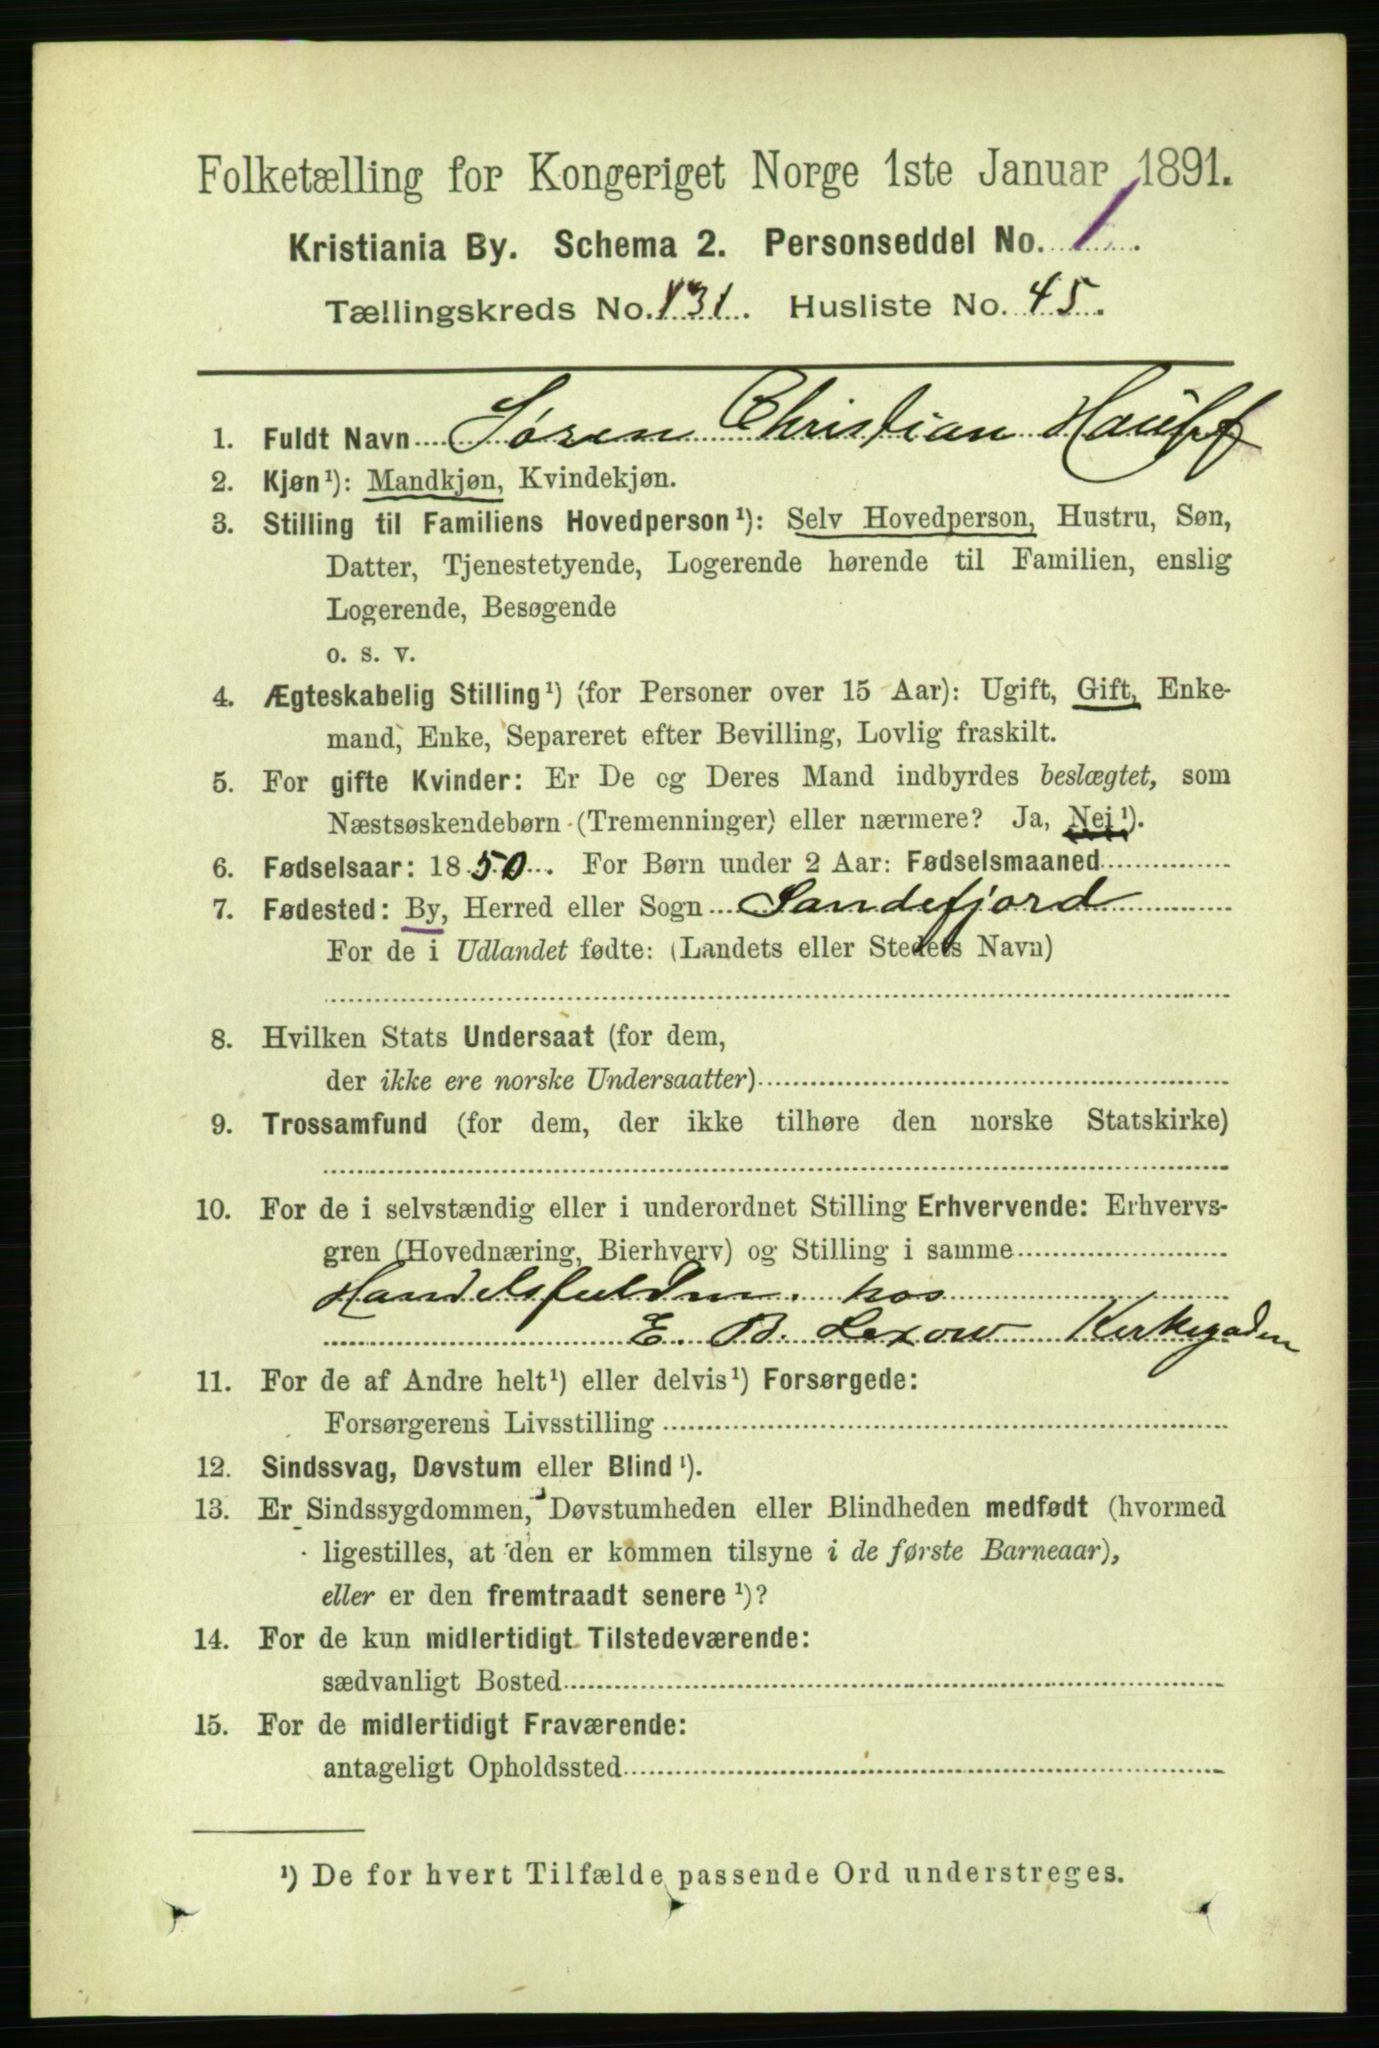 Folketælling for Kongeriget Norge 1ste Januar 1891.
Kristiania By. Schema 2. Personseddel No. 1.
Tællingskreds No. 131. Husliste No. 45.
1. Fuldt Navn Søren Christian Hauff
2. Kjøn¹): Mandkjøn, Kvindekjøn.
3. Stilling til Familiens Hovedperson¹): Selv Hovedperson, Hustru, Søn,
Datter, Tjenestetyende, Logerende hørende til Familien, enslig
Logerende, Besøgende
o. s. v.
4. Ægteskabelig Stilling¹) (for Personer over 15 Aar): Ugift, Gift, Enke-
mand, Enke, Separeret efter Bevilling, Lovlig fraskilt.
5. For gifte Kvinder: Er De og Deres Mand indbyrdes beslægtet, som
Næstsøskendebørn (Tremenninger) eller nærmere? Ja, Nej¹).
6. Fødselsaar: 1850. For Børn under 2 Aar: Fødselsmaaned
7. Fødested: By, Herred eller Sogn Sandefjord
For de i Udlandet fødte: (Landets eller Stedets Navn)
8. Hvilken Stats Undersaat (for dem,
der ikke ere norske Undersaatter)
9. Trossamfund (for dem, der ikke tilhøre den norske Statskirke)
10. For de i selvstændig eller i underordnet Stilling Erhvervende: Erhvervs-
gren (Hovednæring, Bierhverv) og Stilling i samme
Handelsfuldm. hos
E. B. Lexow Kirkegaden
11. For de af Andre helt¹) eller delvis¹) Forsørgede:
Forsørgerens Livsstilling
12. Sindssvag, Døvstum eller Blind¹).
13. Er Sindssygdommen, Døvstumheden eller Blindheden medfødt (hvormed
ligestilles, at den er kommen tilsyne i de første Barneaar),
eller er den fremtraadt senere¹)?
14. For de kun midlertidigt Tilstedeværende:
sædvanligt Bosted
15. For de midlertidigt Fraværende:
antageligt Opholdssted
¹) De for hvert Tilfælde passende Ord understreges.